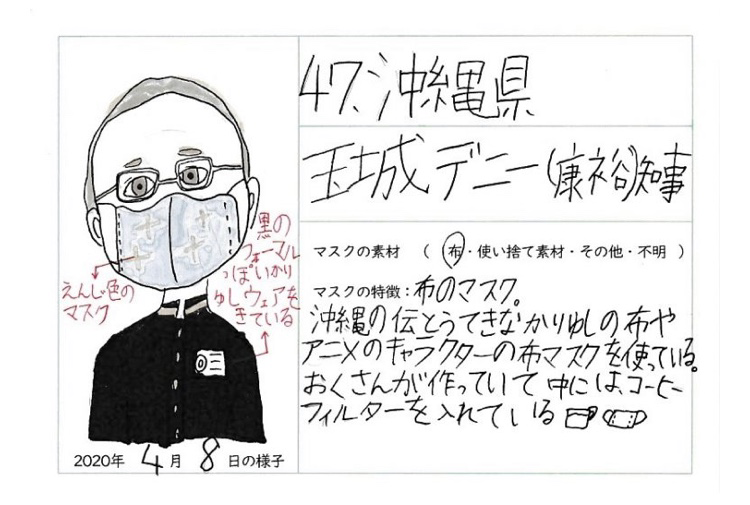 47、沖縄県
玉城デニー(康裕)知事
マスクの素材 ( 布・使い捨て素材・その他・不明 )
マスクの特徴:布のマスク。
沖縄の伝とうてきなかりゆしの布や
アニメのキャラクターの布マスクを使っている。
おくさんが作っていて中には、コーヒー
フィルターを入れている
えんじ色の
マスク
黒の
フォーマル
っぽいかり
ゆしウェアを
きている
2020年 4月 8日の様子